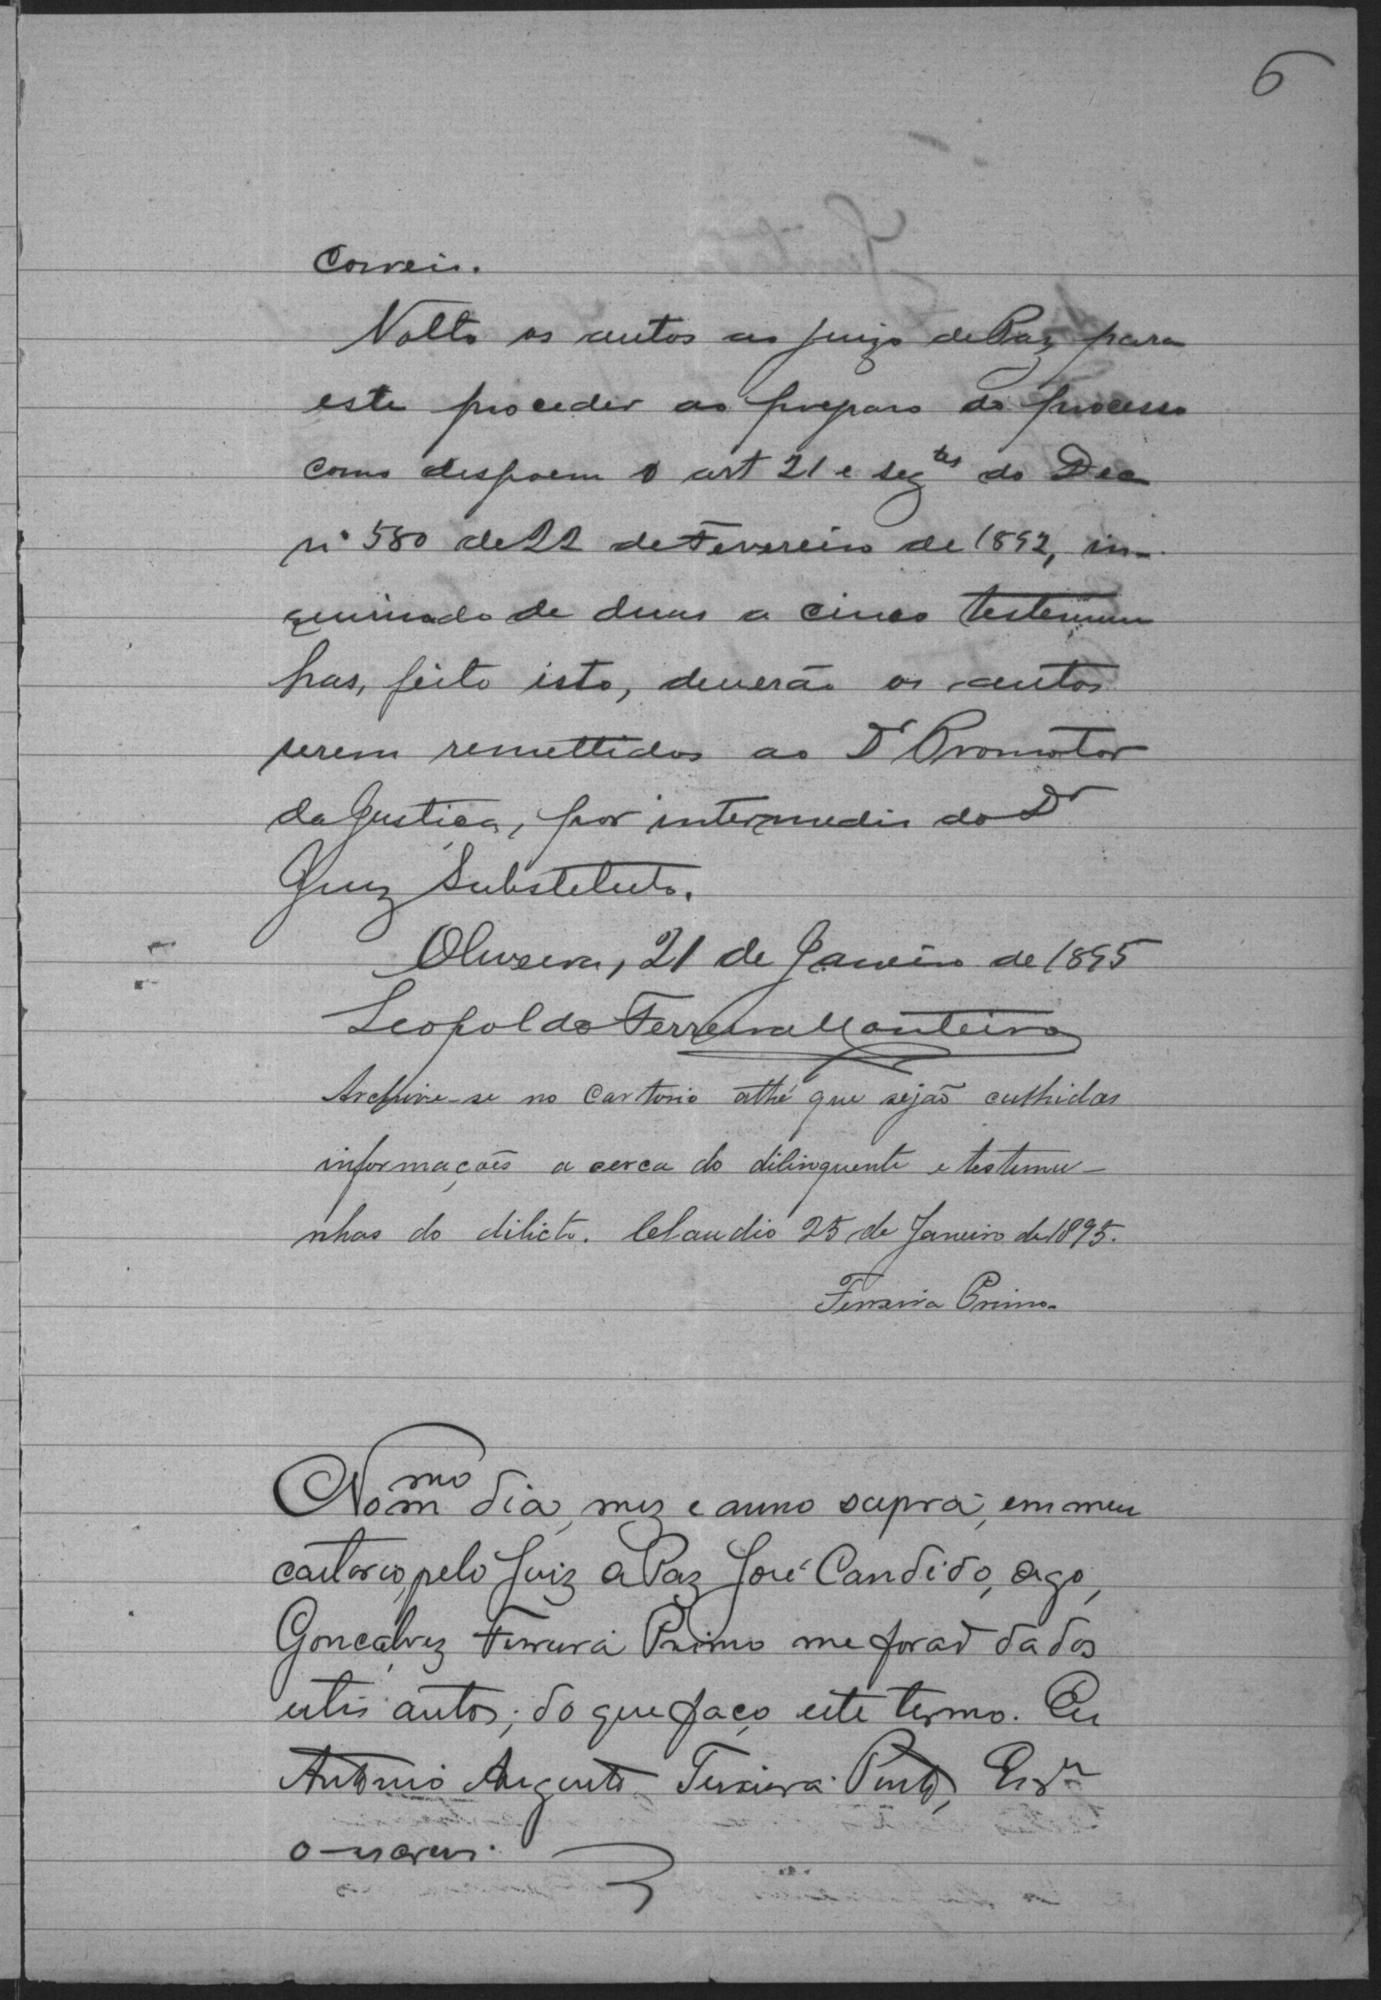 6
Correis.
Volte os autos ao juizo de Paz para
este proceder ao preparo do processo
como dispoem o art 21 e seg.tes do Dec
nº 580 de 22 de Fevereiro de 1892, in-
quirindo de duas a cinco testemun
has, feito isto, deverão os autos
serem remettidos ao Dr Promotor
da Justiça, por intermedio do Dr
Juiz Substituto.
Oliveira, 21 de Janeiro de 1895
Leopoldo Ferreira Monteiro
Archive-se no Cartorio athé que sejão culhidas
informações a cerca do dilinquente e testemu-
nhas do dilicto. Claudio 25 de Janeiro de 1895.
Ferreira Primo.
No mmo dia, mez e anno supra, em meu
cartorio, pelo Juiz de Paz José Candido, digo,
Gonçalvez Ferreira Primo me forão dados
estes autos; do que faço este termo. Eu
Antonio Augusto Teixeira Pinto, Escr.m
o escrevi.